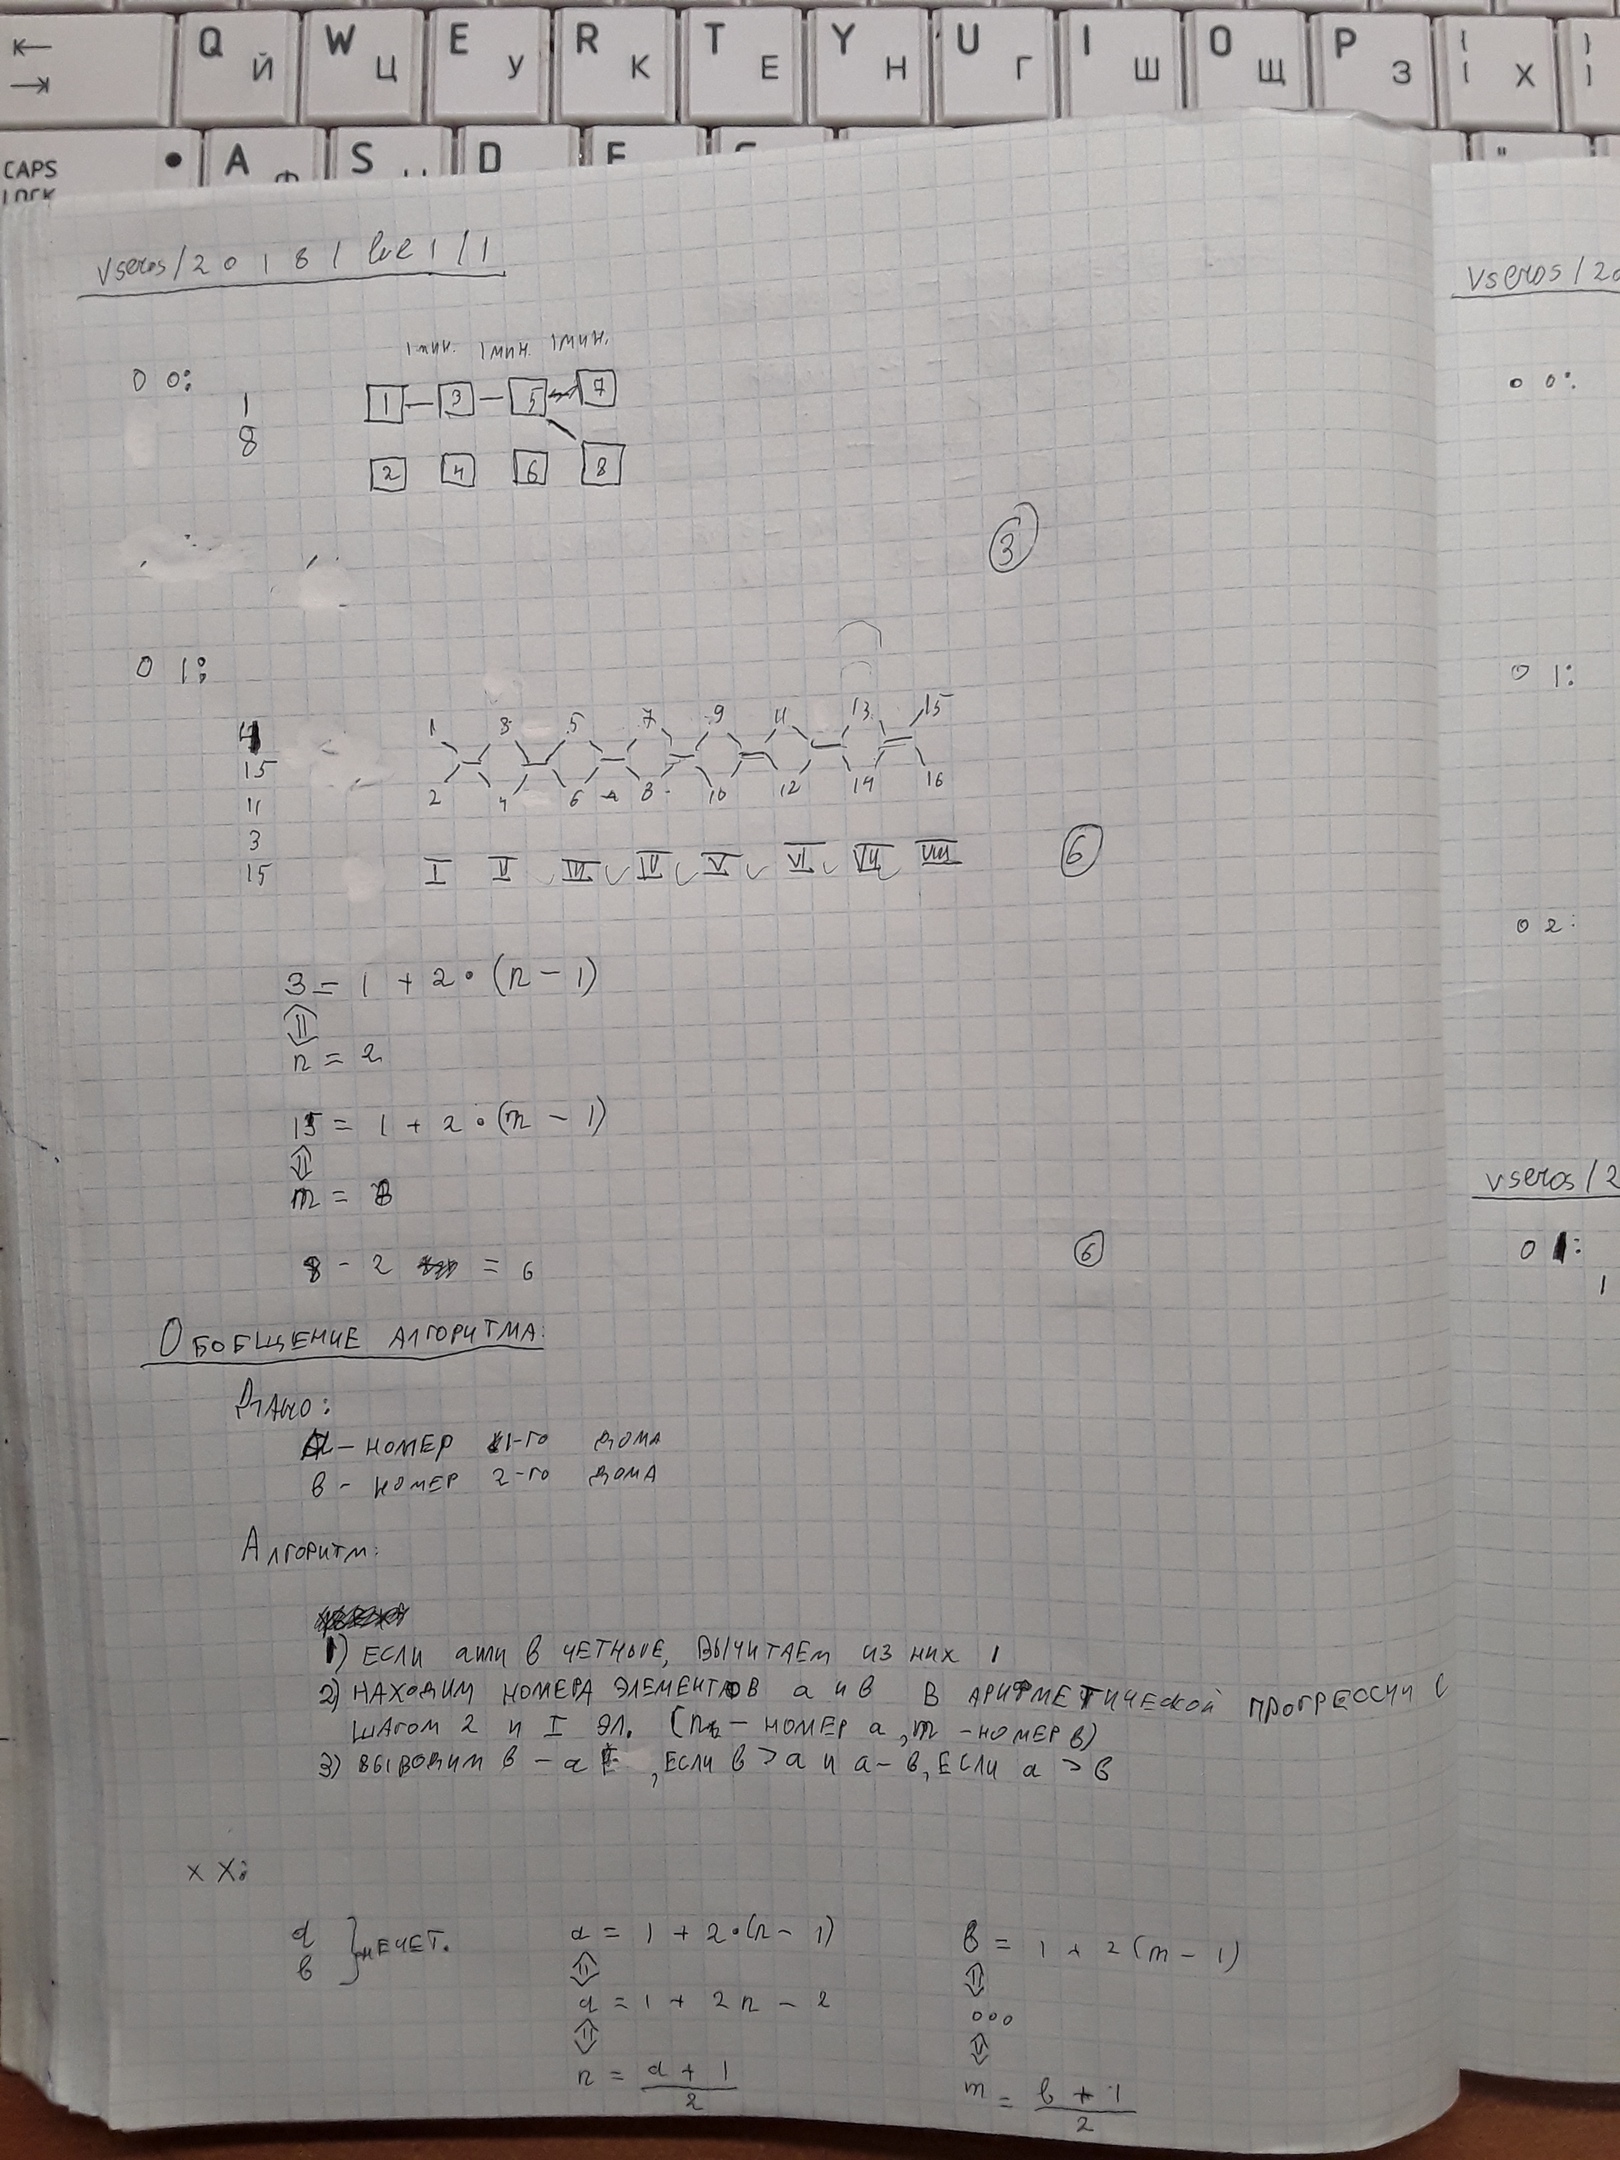 Q Й W Ц E У R К T Е Y Н U Г I Ш O Щ P З { [ Х } ]
CAPS LOCK A Ф S D F
vseros/2018/lvl1/1
vseros/20
00:
1
8
1 мин. 1 мин. 1 мин.
1 3 5 7
2 4 6 8
3
00:
01:
15
11
3
15
1 3 5 7 9 11 13 15
2 4 6 8 10 12 14 16
I II III IV V VI VII VIII
6
01:
02:
3 = 1 + 2 • (n - 1)
⇕
n = 2
15 = 1 + 2 • (m - 1)
⇕
m = 8
8 - 2 = 6
6
vseros/2
01:
1
Обобщение алгоритма:
Дано:
a - номер 1-го дома
в - номер 2-го дома
Алгоритм:
1) если a или в четные, вычитаем из них 1
2) находим номера элементов a и в в арифметической прогрессии с
шагом 2 и I эл. (n - номер a, m - номер в)
3) выводим в - a, если в > a и a - в, если a > в
xx:
a
в } нечет.
a = 1 + 2•(n - 1)
⇕
a = 1 + 2n - 2
⇕
n = (a + 1)/2
в = 1 + 2(m - 1)
⇕
...
⇕
m = (в + 1)/2